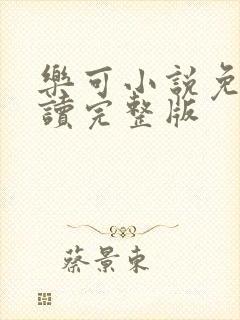 樂可小說免
讀完整版
蔡景東